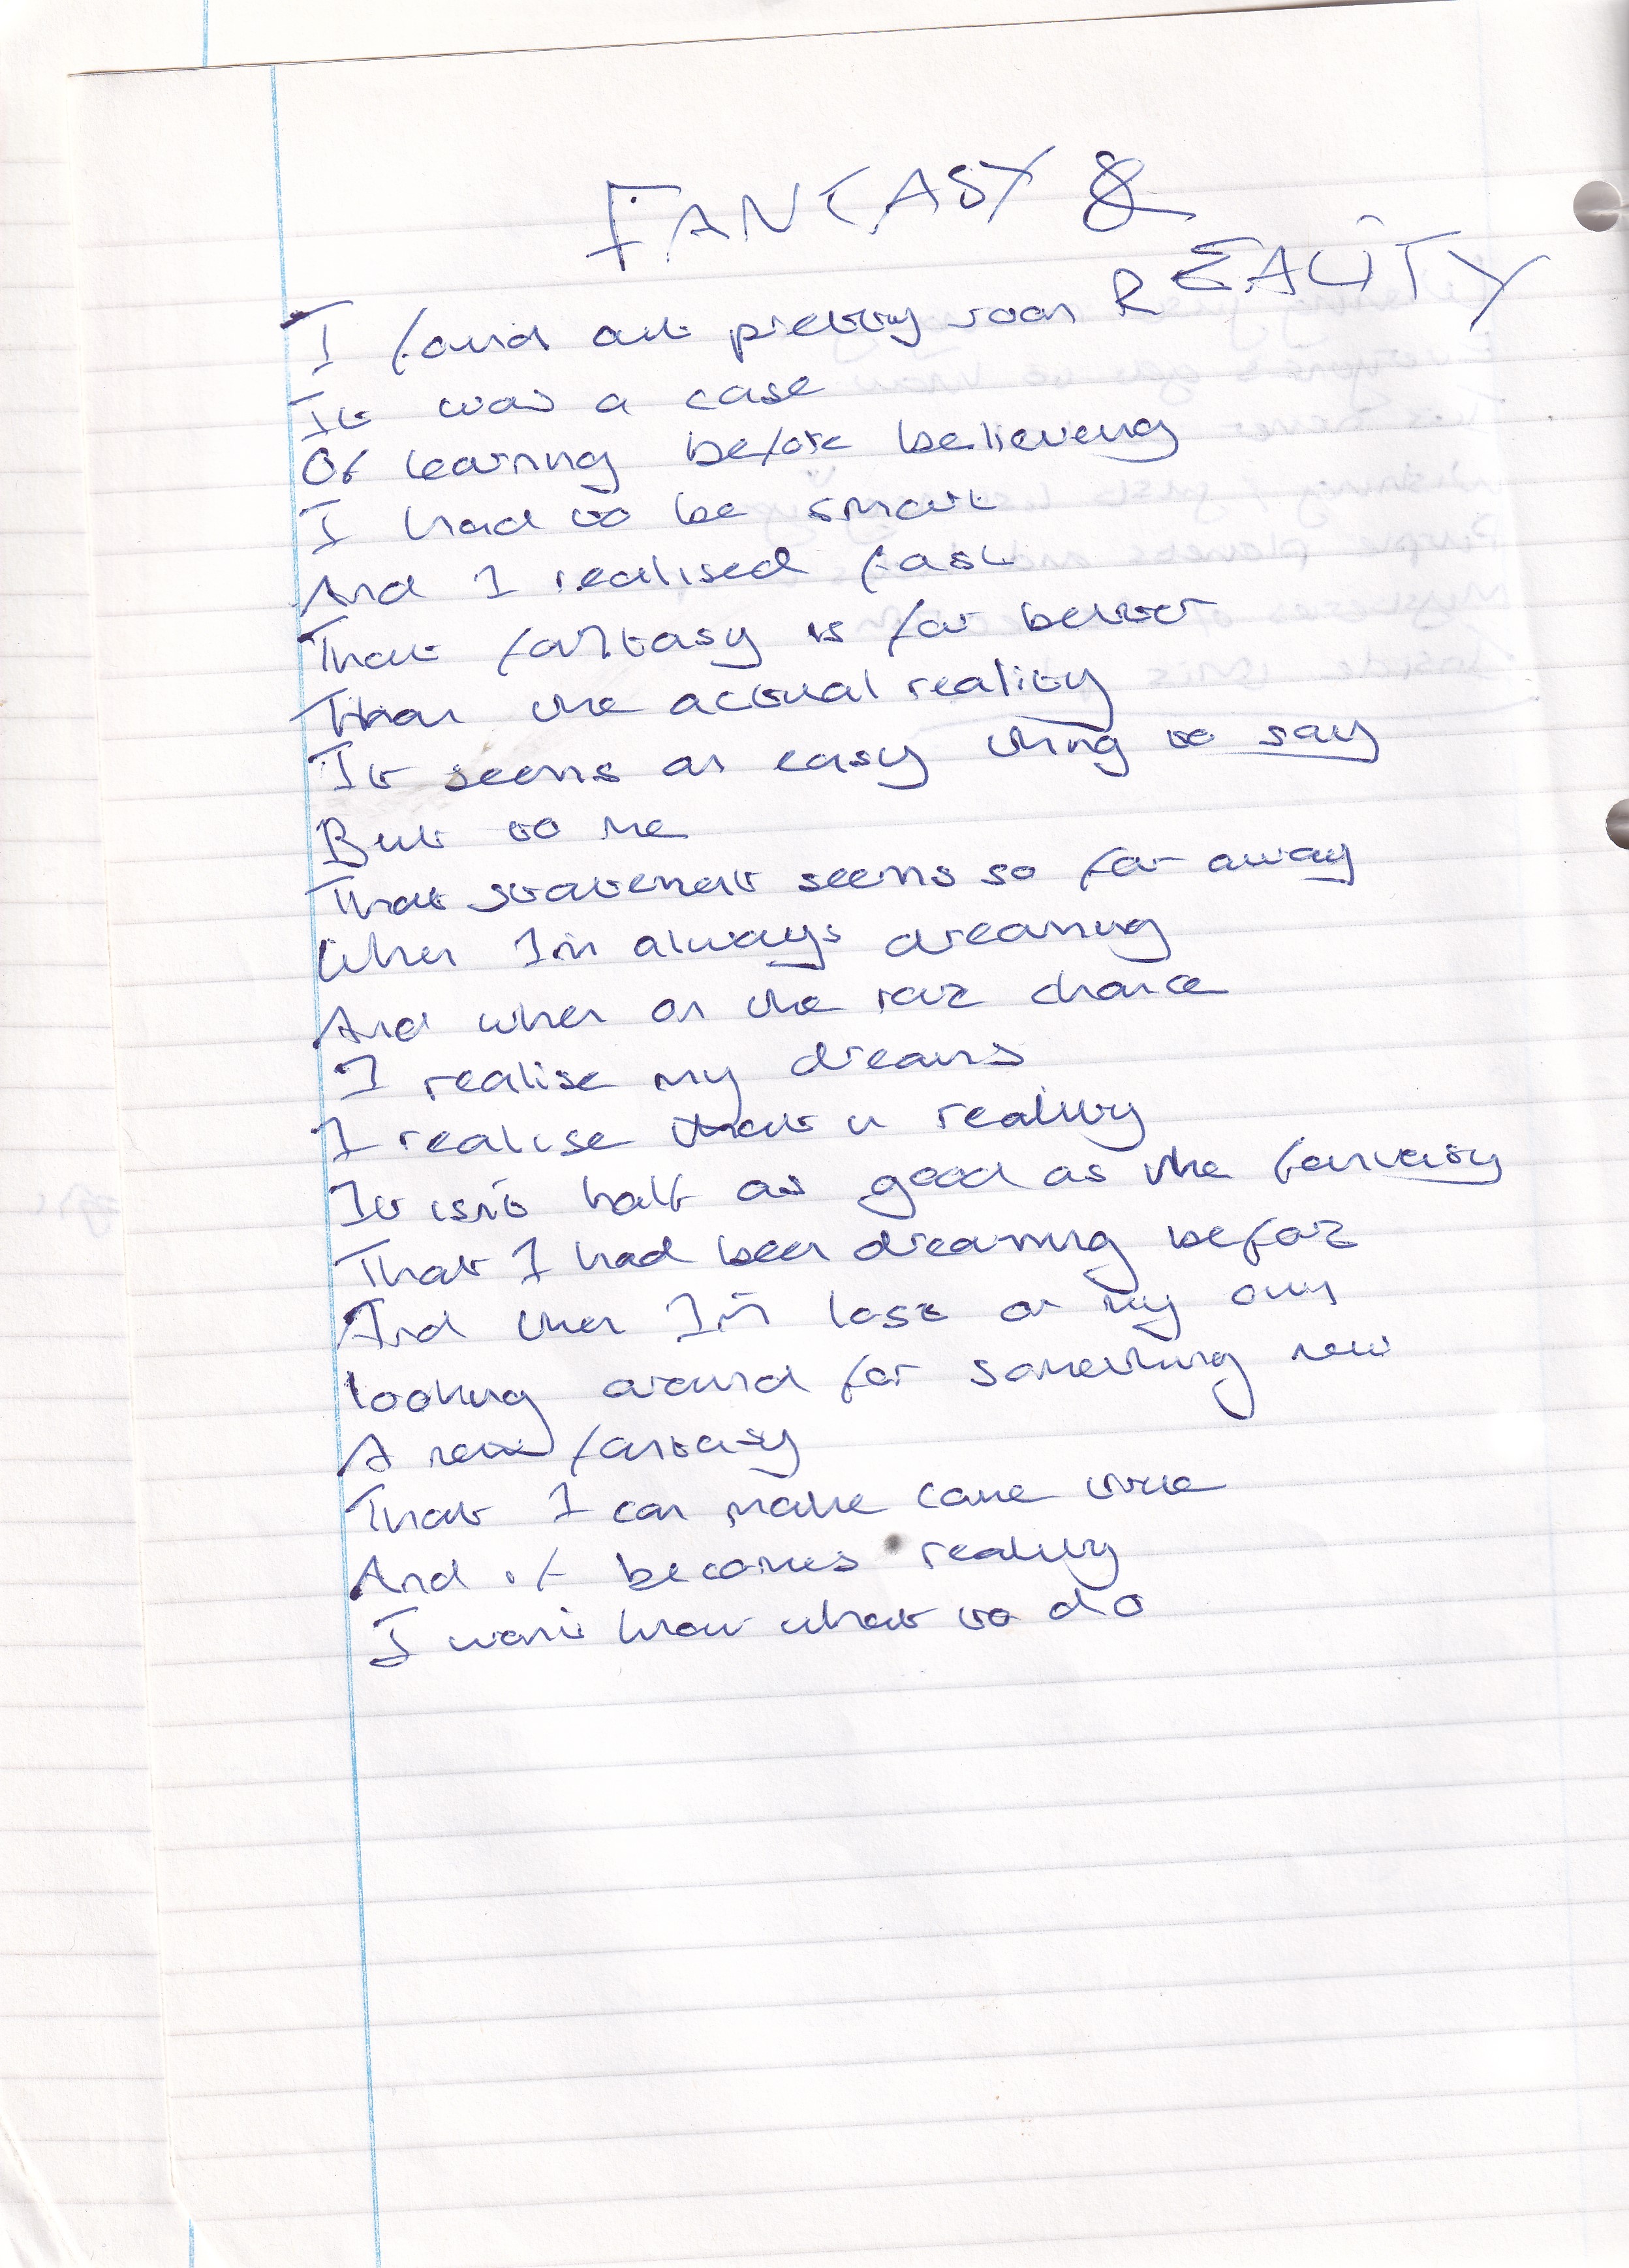 FANTASY &
REALITY
I found out pretty soon
It was a case
Of learning before believeing
I had to be smart
And I realised fast
That fantasy is far better
Than the actual reality
It seems an easy thing to say
But to me
That statement seems so far away
When I'm always dreaming
And when on the rare chance
I realise my dreams
I realise that in reality
It isn't half as good as the fantasy
That I had been dreaming before
And then I'm lost on my own
looking around for something new
A new fantasy
That I can make come true
And if becomes reality
I won't know what to do